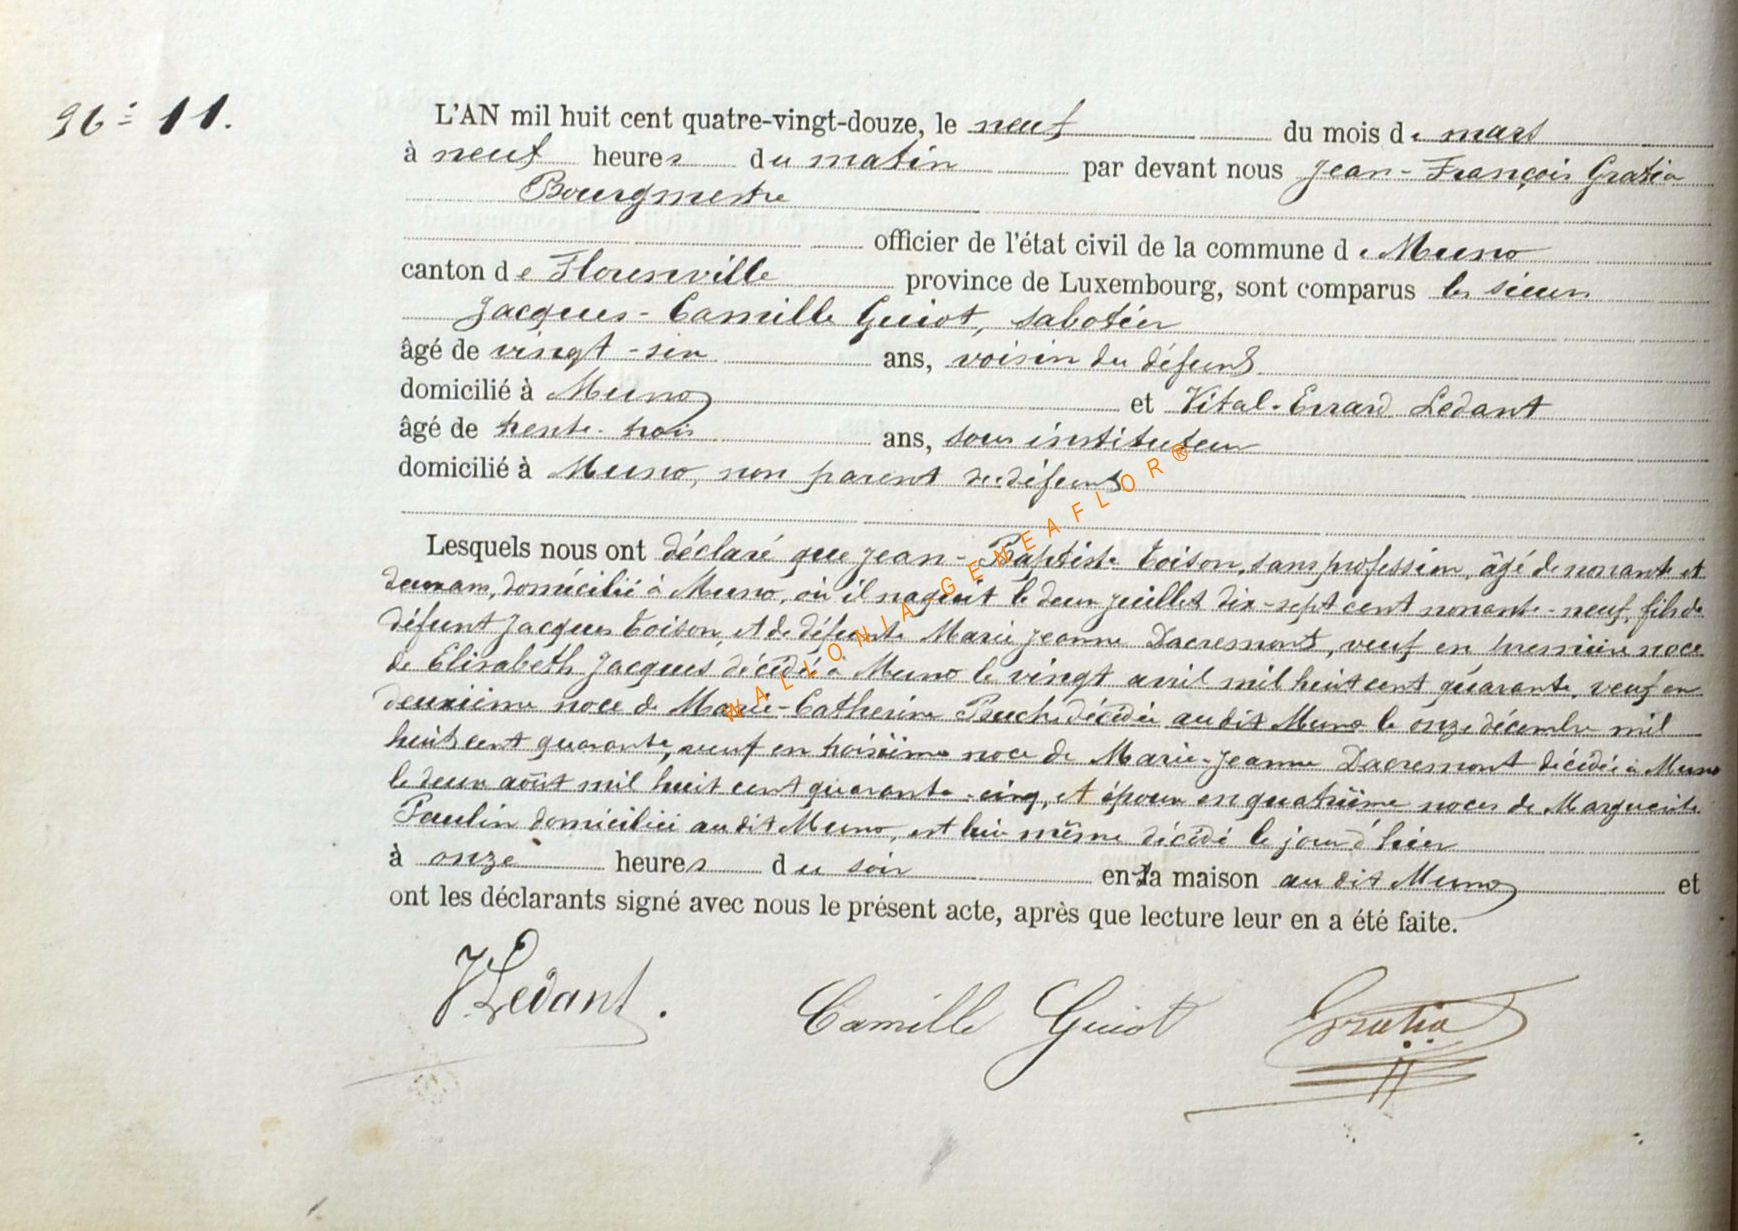 N° 11.
L'AN mil huit cent quatre-vingt-douze, le neuf du mois de mars
à neuf heures du matin par devant nous Jean-François Gratia
Bourgmestre
officier de l'état civil de la commune de Muno
canton de Florenville province de Luxembourg, sont comparus les sieurs
Jacques-Camille Guiot, sabotier
âgé de vingt-six ans, voisin du défunt
domicilié à Muno et Vital-Errard Ledant
âgé de trente-trois ans, sous instituteur
domicilié à Muno, non parent du défunt
Lesquels nous ont déclaré que Jean-Baptiste Toison, sans profession, âgé de nonante et
deux ans, domicilié à Muno, où il naquit le deux juillet dix-sept cent nonante-neuf, fils de
défunt Jacques Toison, et de défunte Marie Jeanne Dacremont, veuf en première noce
de Elisabeth Jacques, décédée à Muno le vingt avril mil huit cent quarante, veuf en
deuxième noce de Marie-Catherine Puche décédée au dit Muno le onze décembre mil
huit cent quarante, veuf en troisième noce de Marie-Jeanne Dacremont décédée à Muno
le deux août mil huit cent quarante-cinq, et époux en quatrième noces de Marguerite
Paulin domiciliée au dit Muno, est lui même décédé le jour d'hier
à onze heures du soir en la maison au dit Muno et
ont les déclarants signé avec nous le présent acte, après que lecture leur en a été faite.
V. Ledant. Camille Guiot Gratia
WALLONIA-GENEAFLOR®